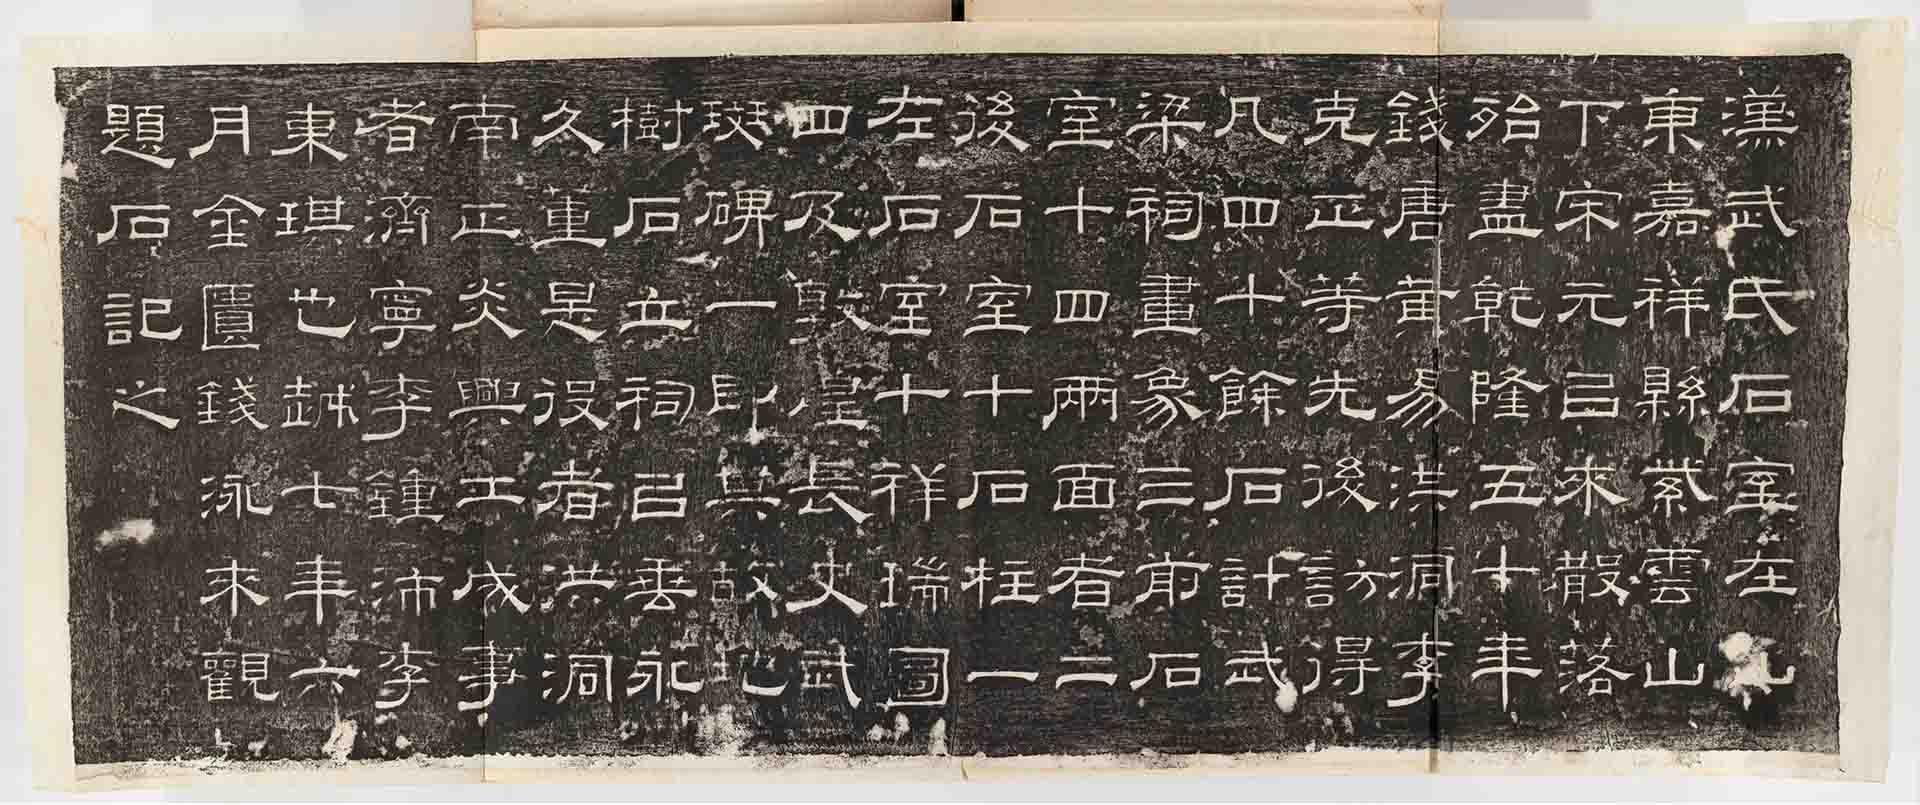 漢武氏石室在山
東嘉祥縣紫雲山
下宋元已來散落
殆盡乾隆五十年
錢唐黃易洪洞李
克正等先後訪得
凡四十餘石計武
梁祠畫象三前石
室十四兩面者二
後石室十石柱一
左石室十祥瑞圖
四及敦煌長史武
斑碑一即其故地
樹石立祠已垂永
久董是役者洪洞
南正炎興工成事
者濟寧李鍾沛李
東琪也越七年六
月金匱錢泳來觀
題石記之